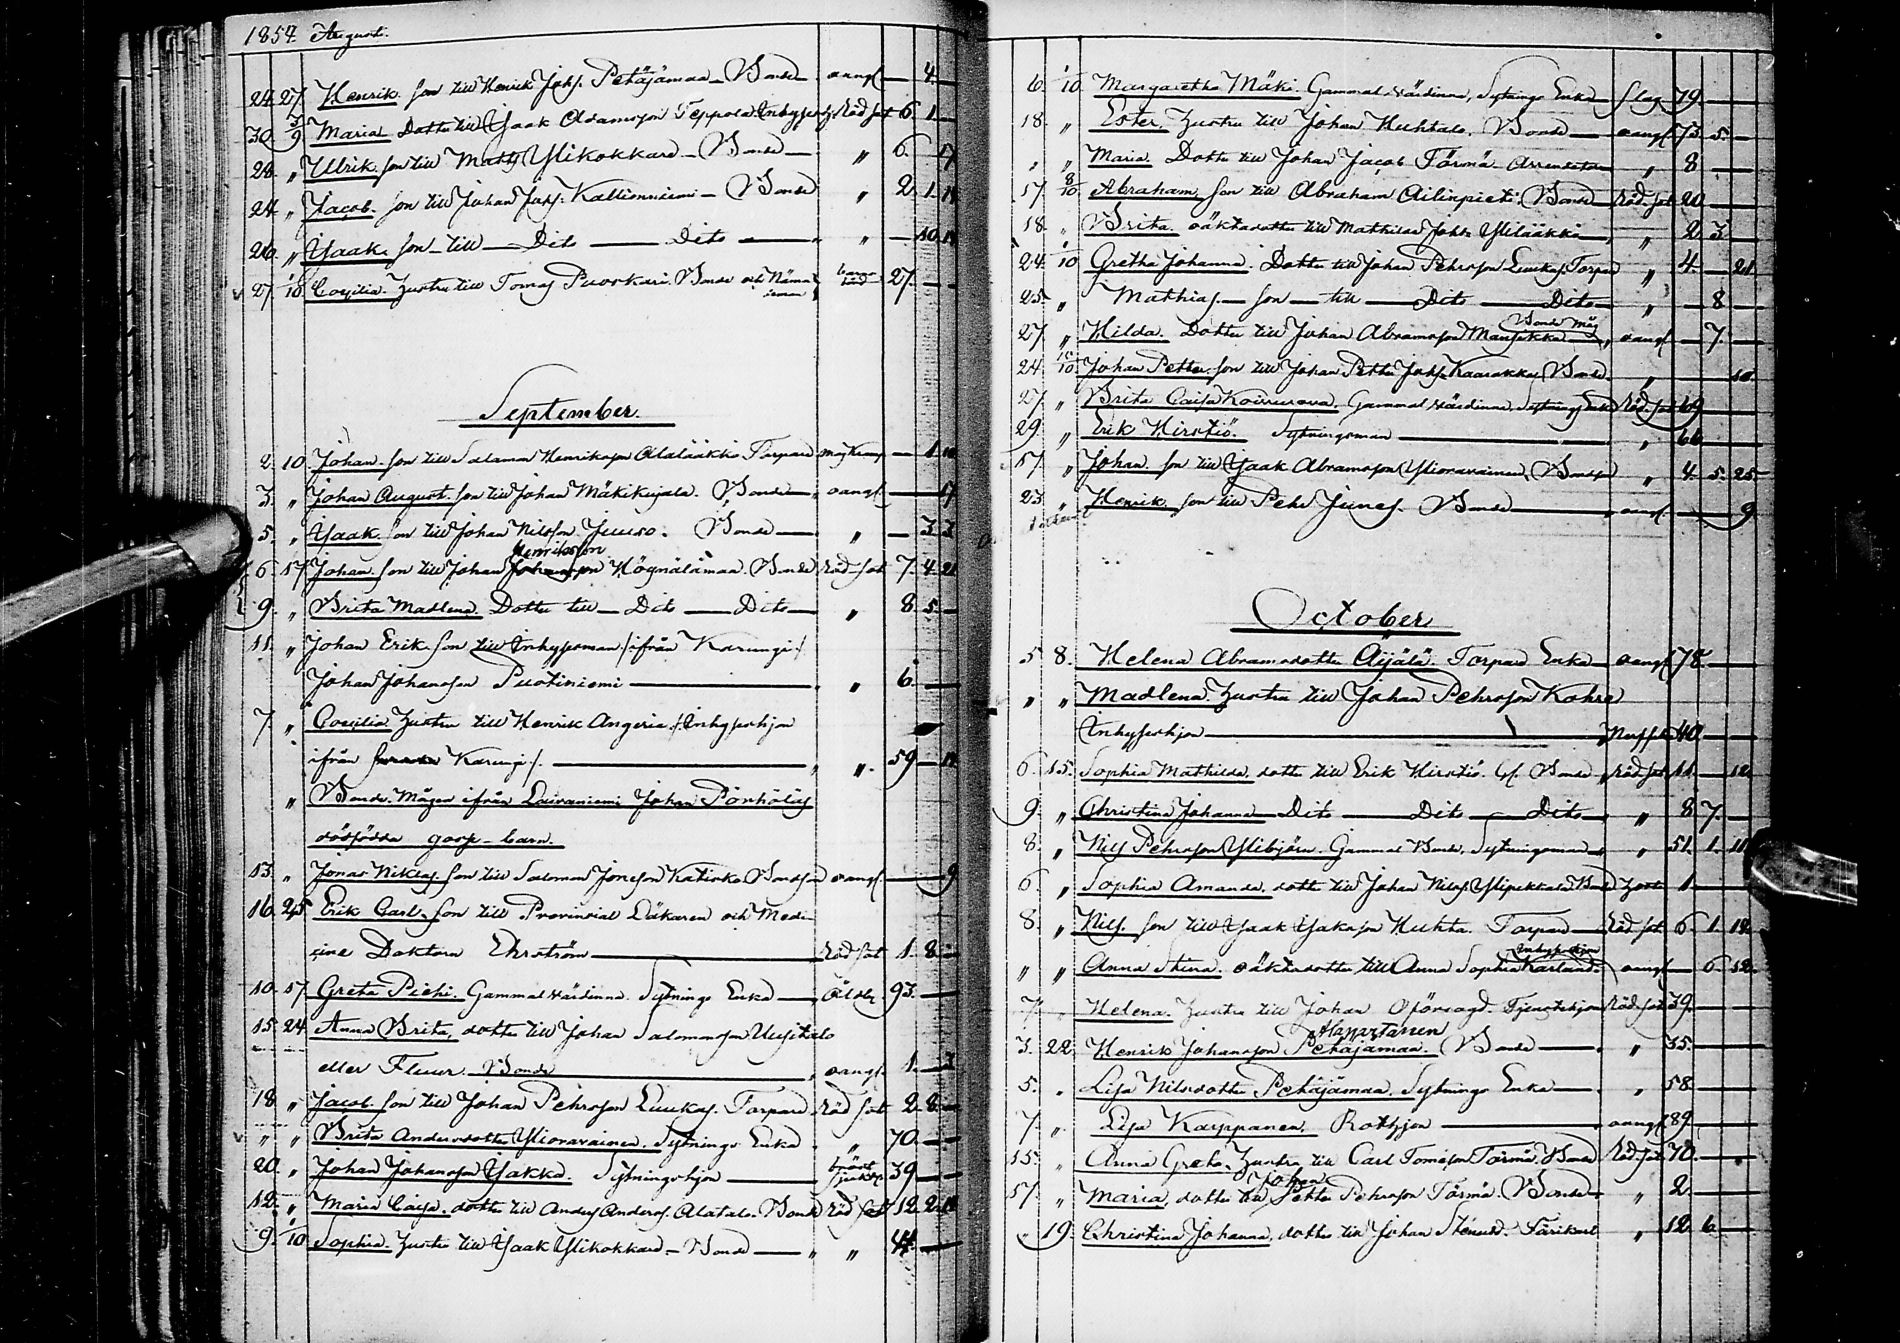 1854. August.
24. 27. Henrik. son till Henrik Johs. Petäjämaa Bonde oangf. 4
30. 3/9 Maria Dotter till Isaak Adamsson Teppola Inhyseshj. Röd sot 6. 1.
28. " Ulrik. son till Matts Ylikokkard Bonde " 6. 17
24. " Jacob. son till Johan Johs. Kallionniemi Bonde " 2. 1. 14
26. " Isaak son till Dito Dito " 10. 14
27. 1/10 Cecilia. Hustru till Tomas Puoskari. Bonde och Nämndeman 27.
September.
2. 10. Johan. son till Salamon Henriksson Alalääkkö Torpare 1. 10
3. " Johan August. son till Johan Mäkikujala. Bonde oangf. 17
5. " Isaak son till Johan Nilsson Juuso. Bonde " 3. 3
Henriksson
6. 17 Johan. son till Johan Johansson Högnälämaa. Bonde Röd sot 7. 4. 21
9. " Brita Madlena. Dotter till Dito Dito " 8. 5.
11. " Johan Erik. son till Inhysesman /:ifrån Karungi:/
Johan Johansson Ruotiniemi " 6.
7. " Cecilia Hustru till Henrik Angeria /:Inhyseshjon
ifrån Karungi/. " 59. 14
" Bonde Mågen ifrån Lairaniemi Johan Pörhölä
dödfödde goss-barn.
13. " Jonas Niklas. son till Salomon Jonsson Katisko Bondson oangf. 9
16. 25 Erik Carl. son till Provinsial Läkaren och Medi-
cine Doktorn Ehrström Röd sot 1. 8.
10. 17 Greta Pichi. Gammal Värdinna. Sytnings Enka Ålder 93.
15. 24. Anna Brita, dotter till Johan Salomonsson Uusitalo
eller Fluur. Bonde oangf. 1. 3
18 " Jacob. son till Johan Pehrsson Luukas. Torpare Röd sot 2. 8.
" " Brita Andersdotter Ylioravainen. Sytnings Enka " 70.
20. " Johan Johansson Yakko. Sytningshjon bröst sjukd. 39
12. " Maria Caisa. dotter till Anders Anders. Alatalo. Bonde Röd sot 12. 2. 14
9. 1/10 Sophia. Hustru till Isaak Ylikokkard Bonde " 44.
6. 1/10 Margaretha Mäki. Gammal Värdinna, Sytnings Enka slag 79.
18. " Ester. Hustru till Johan Huhtalo, Bonde oangf. 73. 5.
" " Maria. Dotter till Johan Jacob Törmä Arrendator " 8
17. 8/10. Abraham, son till Abraham Ailinpieti Bonde Röd. sot 20
18. " Brita. oäkta dotter till Mathilda Joh. Ylilääkkö " 2. 3.
24. 1/10 Gretha Johanna. Dotter till Johan Pehrsson Luukas Torpare " 4. 21
25. " Mathias son till Dito Dito " 8
Bonde Måg
27. " Hilda. Dotter till Johan Abramsson Mansikka oangf. 7.
24. 10. Johan Petter. son till Johan Petter Johs. Kaarakka Bonde " 10.
27. " Brita Caisa Koivurova. Gammal Värdinna, Sytnings Enka Röd. sot 69
29. " Erik Hirstiö. Sytningsman " 66
17. " Johan. son till Isaak Abramsson Ylioravainen Bonde " 4. 5. 25
23. " Henrik. son till Pehr Junes. Bonde oangf. 9
October
5. 8. Helena Abramsdotter Äijälä. Torpare Enka oangf. 78
" " Madlena. Hustru till Johan Pehrsson Kohre
Inhyseshjon 40
6. 15. Sophia Mathilda. dotter till Erik Hirstiö. Bonde Röd sot 11. 12
9. " Christina Johanna Dito Dito Dito " 8 7.
8. " Nils Pehrsson Ylibjörn. Gammal Bonde. Sytningsman " 51. 1. 11
6. " Sophia Amanda, dotter till Johan Nils. Ylipekkala Bonde 1.
8. " Nils. son till Isaak Isaksson Huhta. Torpare Röd sot 6. 1. 14
" " Anna Stina. oäkta dotter till Anna Sophia Karlund. oangf. 6. 12
7. " Helena. Hustru till Johan Oförsagd. Tjenstehjon Röd. sot 39.
Alapartanen
3. 22 Henrik Johansson Petäjämaa. Bonde " 35.
5. " Lisa Nilsdotter Petäjämaa. Sytnings Enka " 58
7. " Lisa Karppanen. Rothjon oangf. 89.
15. " Anna Greta. Hustru till Carl Tomasson Törmä. Bonde Röd. sot 70.
Johan
17. " Maria, dotter till Petter Pehrsson Törmä. Bonde " 2.
" 19. Christina Johanna, dotter till Johan Stenlund. Färikarl " 12. 6.